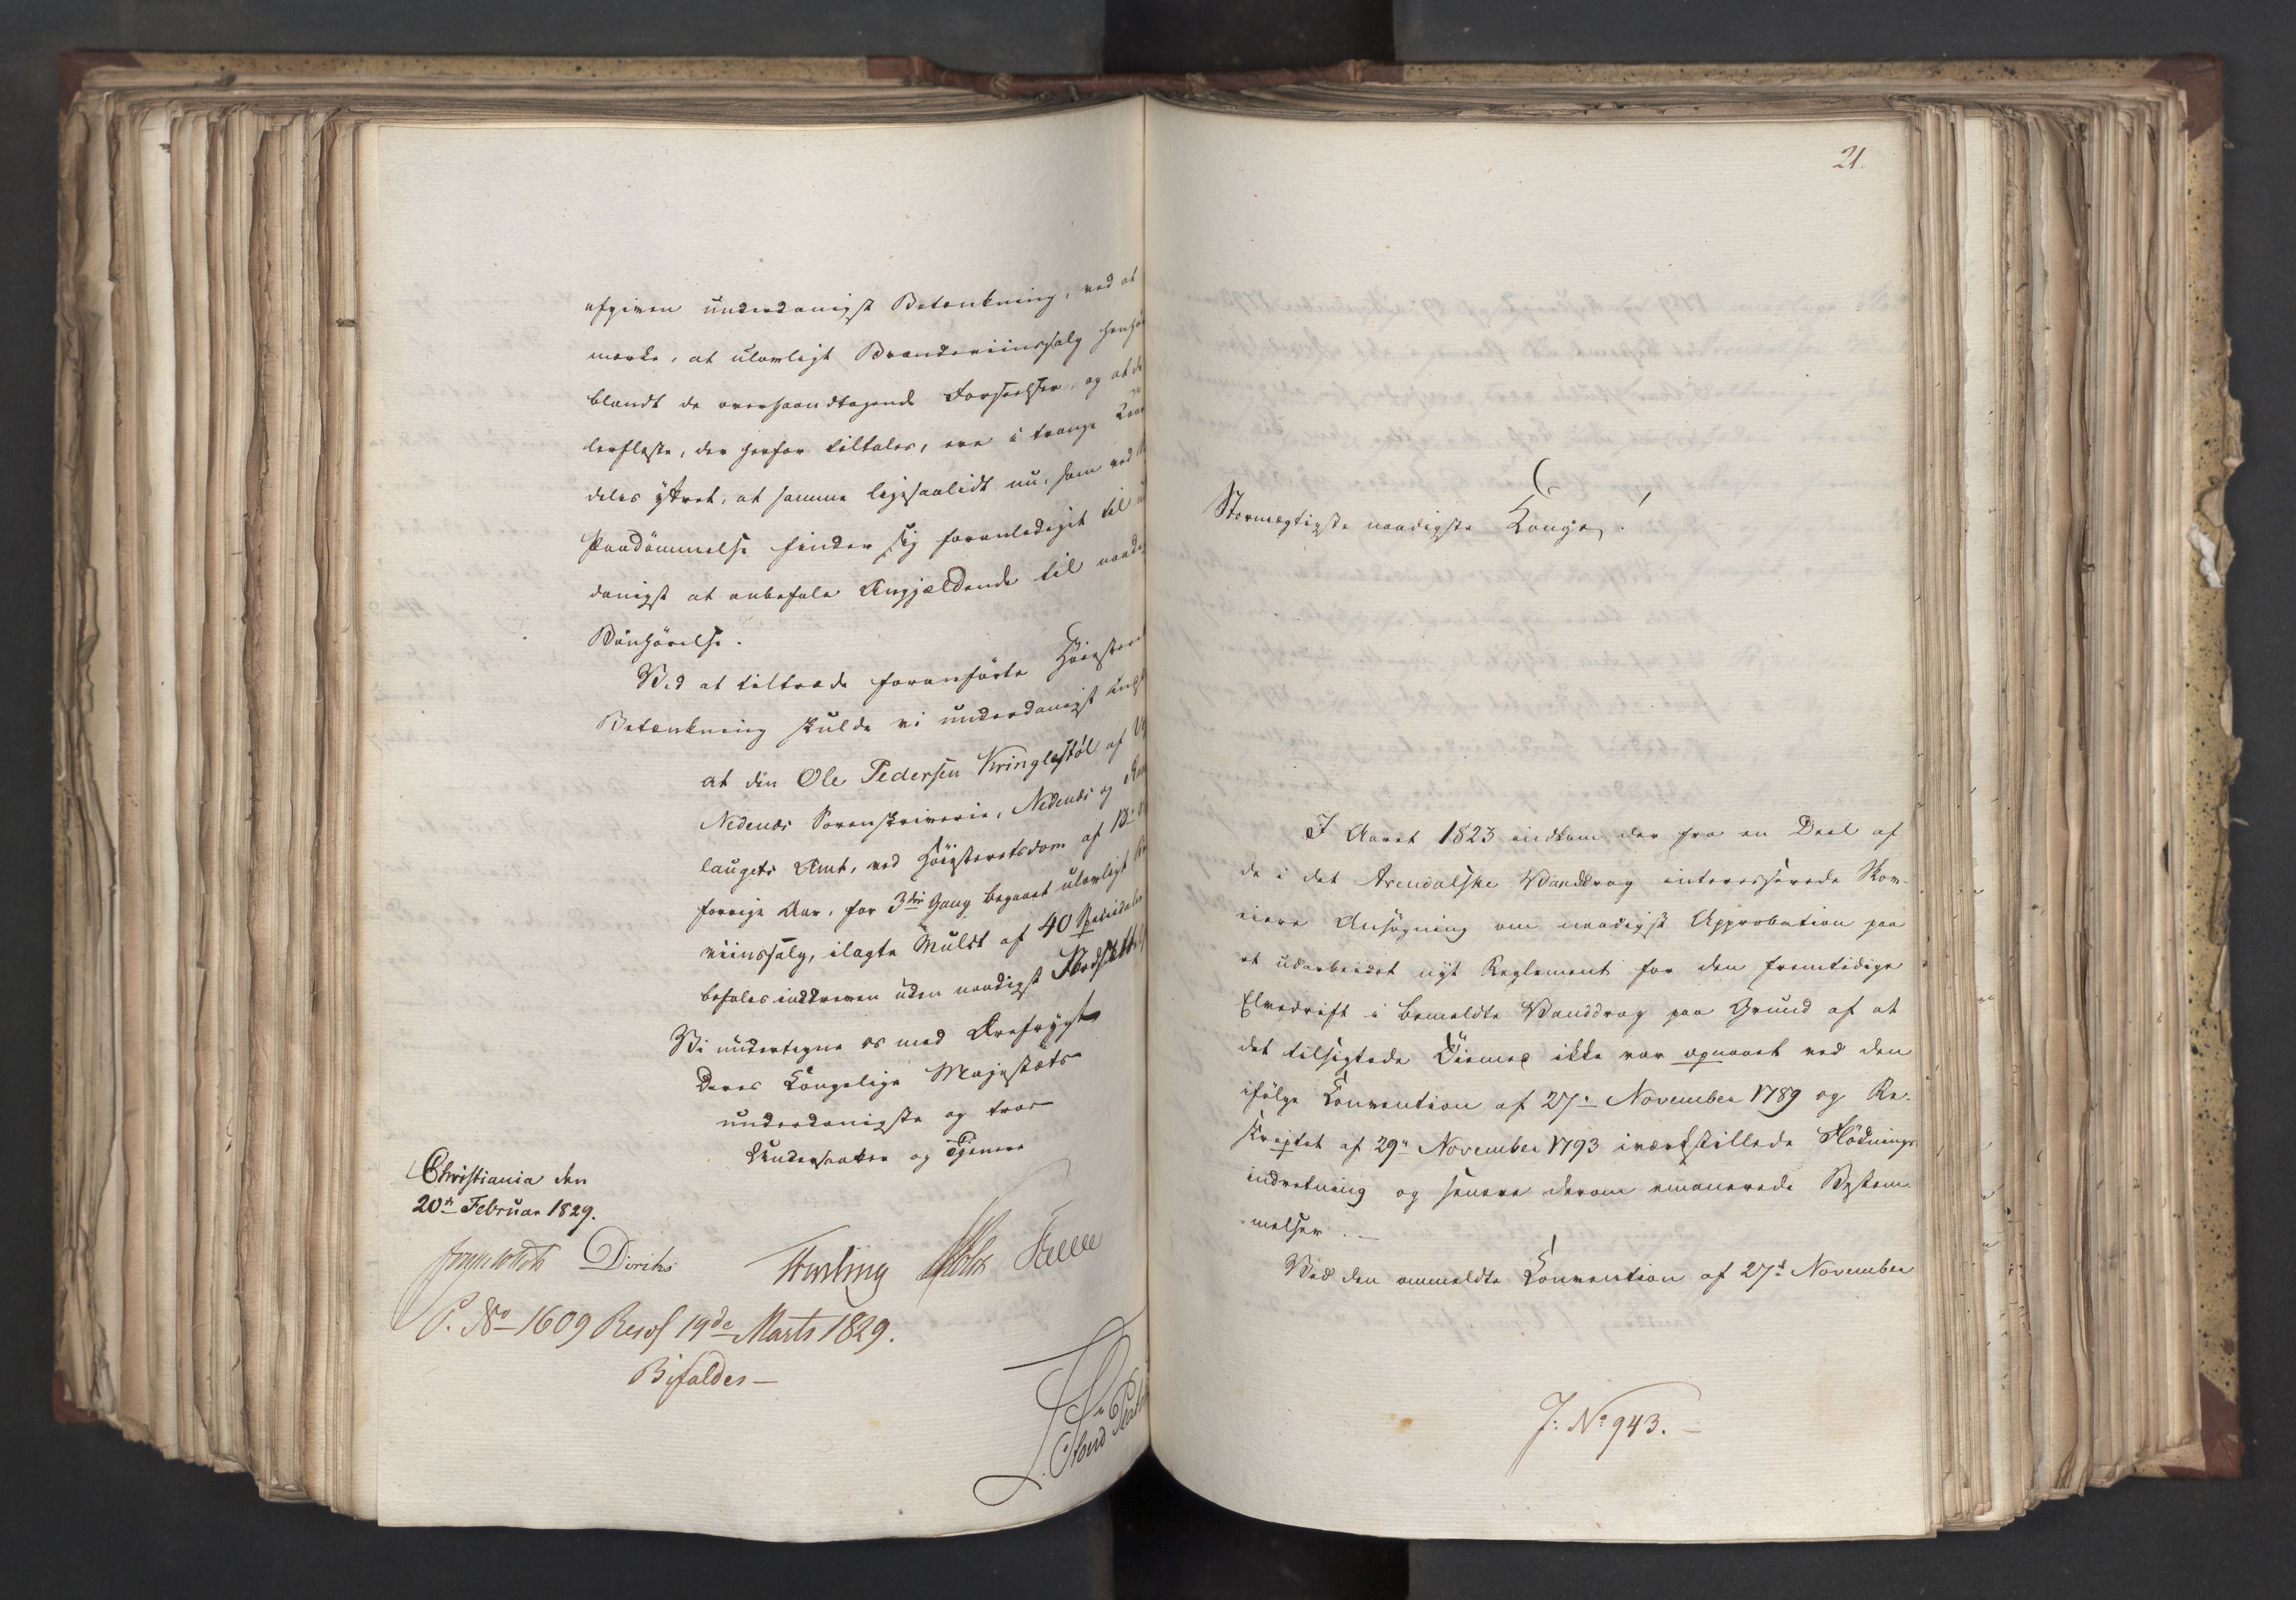 afgiven underdanigst Betænkning, ved at
mærke, at ulovligt Brændeviinssalg henhø
blandt de overhaandtagende Forseelser, og at de
lerfleste, der herfor tiltales, ere i trange Kaar
deles yttret, at samme ligesaalidt nu, som ved
Paadømmelse finder sig foranlediget til u
danigst at anbefale Angjældende til naadi
Bönhörelse.
Ved at tiltræde foranförte Höiesteret
Betænkning skulde vi underdanigst
at den Ole Pedersen Kringlestøl af
Nedenæs Sorenskriverie, Nedenæs og
laugets Amt, ved Höiesteretsdom af 13
forrige Aar, for 3die Gang begaaet ulovligt
viinssalg, ilagte Mulct af 40 Speciedaler
befales inddreven uden naadigst
Vi undertegne os med Ærefrygt
Deres Kongelige Majestæts
underdanigste og troe
Undersaatter og Tjenere
Christiania den
20de Februar 1829.
Diriks Holst
P. No 1609 Resol 19de Marts 1829.
Bifaldes —
21.
Stormægtigste naadigste Konge!
I Aaret 1823 indkom der fra en Deel af
de i det Arendalske Vanddrag interesserede Skov-
eiere Ansøgning om naadigst Approbation paa
et udarbeidet nyt Reglement for den fremtidige
Elvedrift i bemeldte Vanddrag paa Grund af at
det tilsigtede Öiemed ikke var opnaaet ved den
ifölge Convention af 27de November 1789 og Re-
skriptet af 29de November 1793 iværkstillede Flödnings
indretning og senere derom emanerede Bestem-
melser. —
Ved den ommeldte Convention af 27de November
J: No 943. —